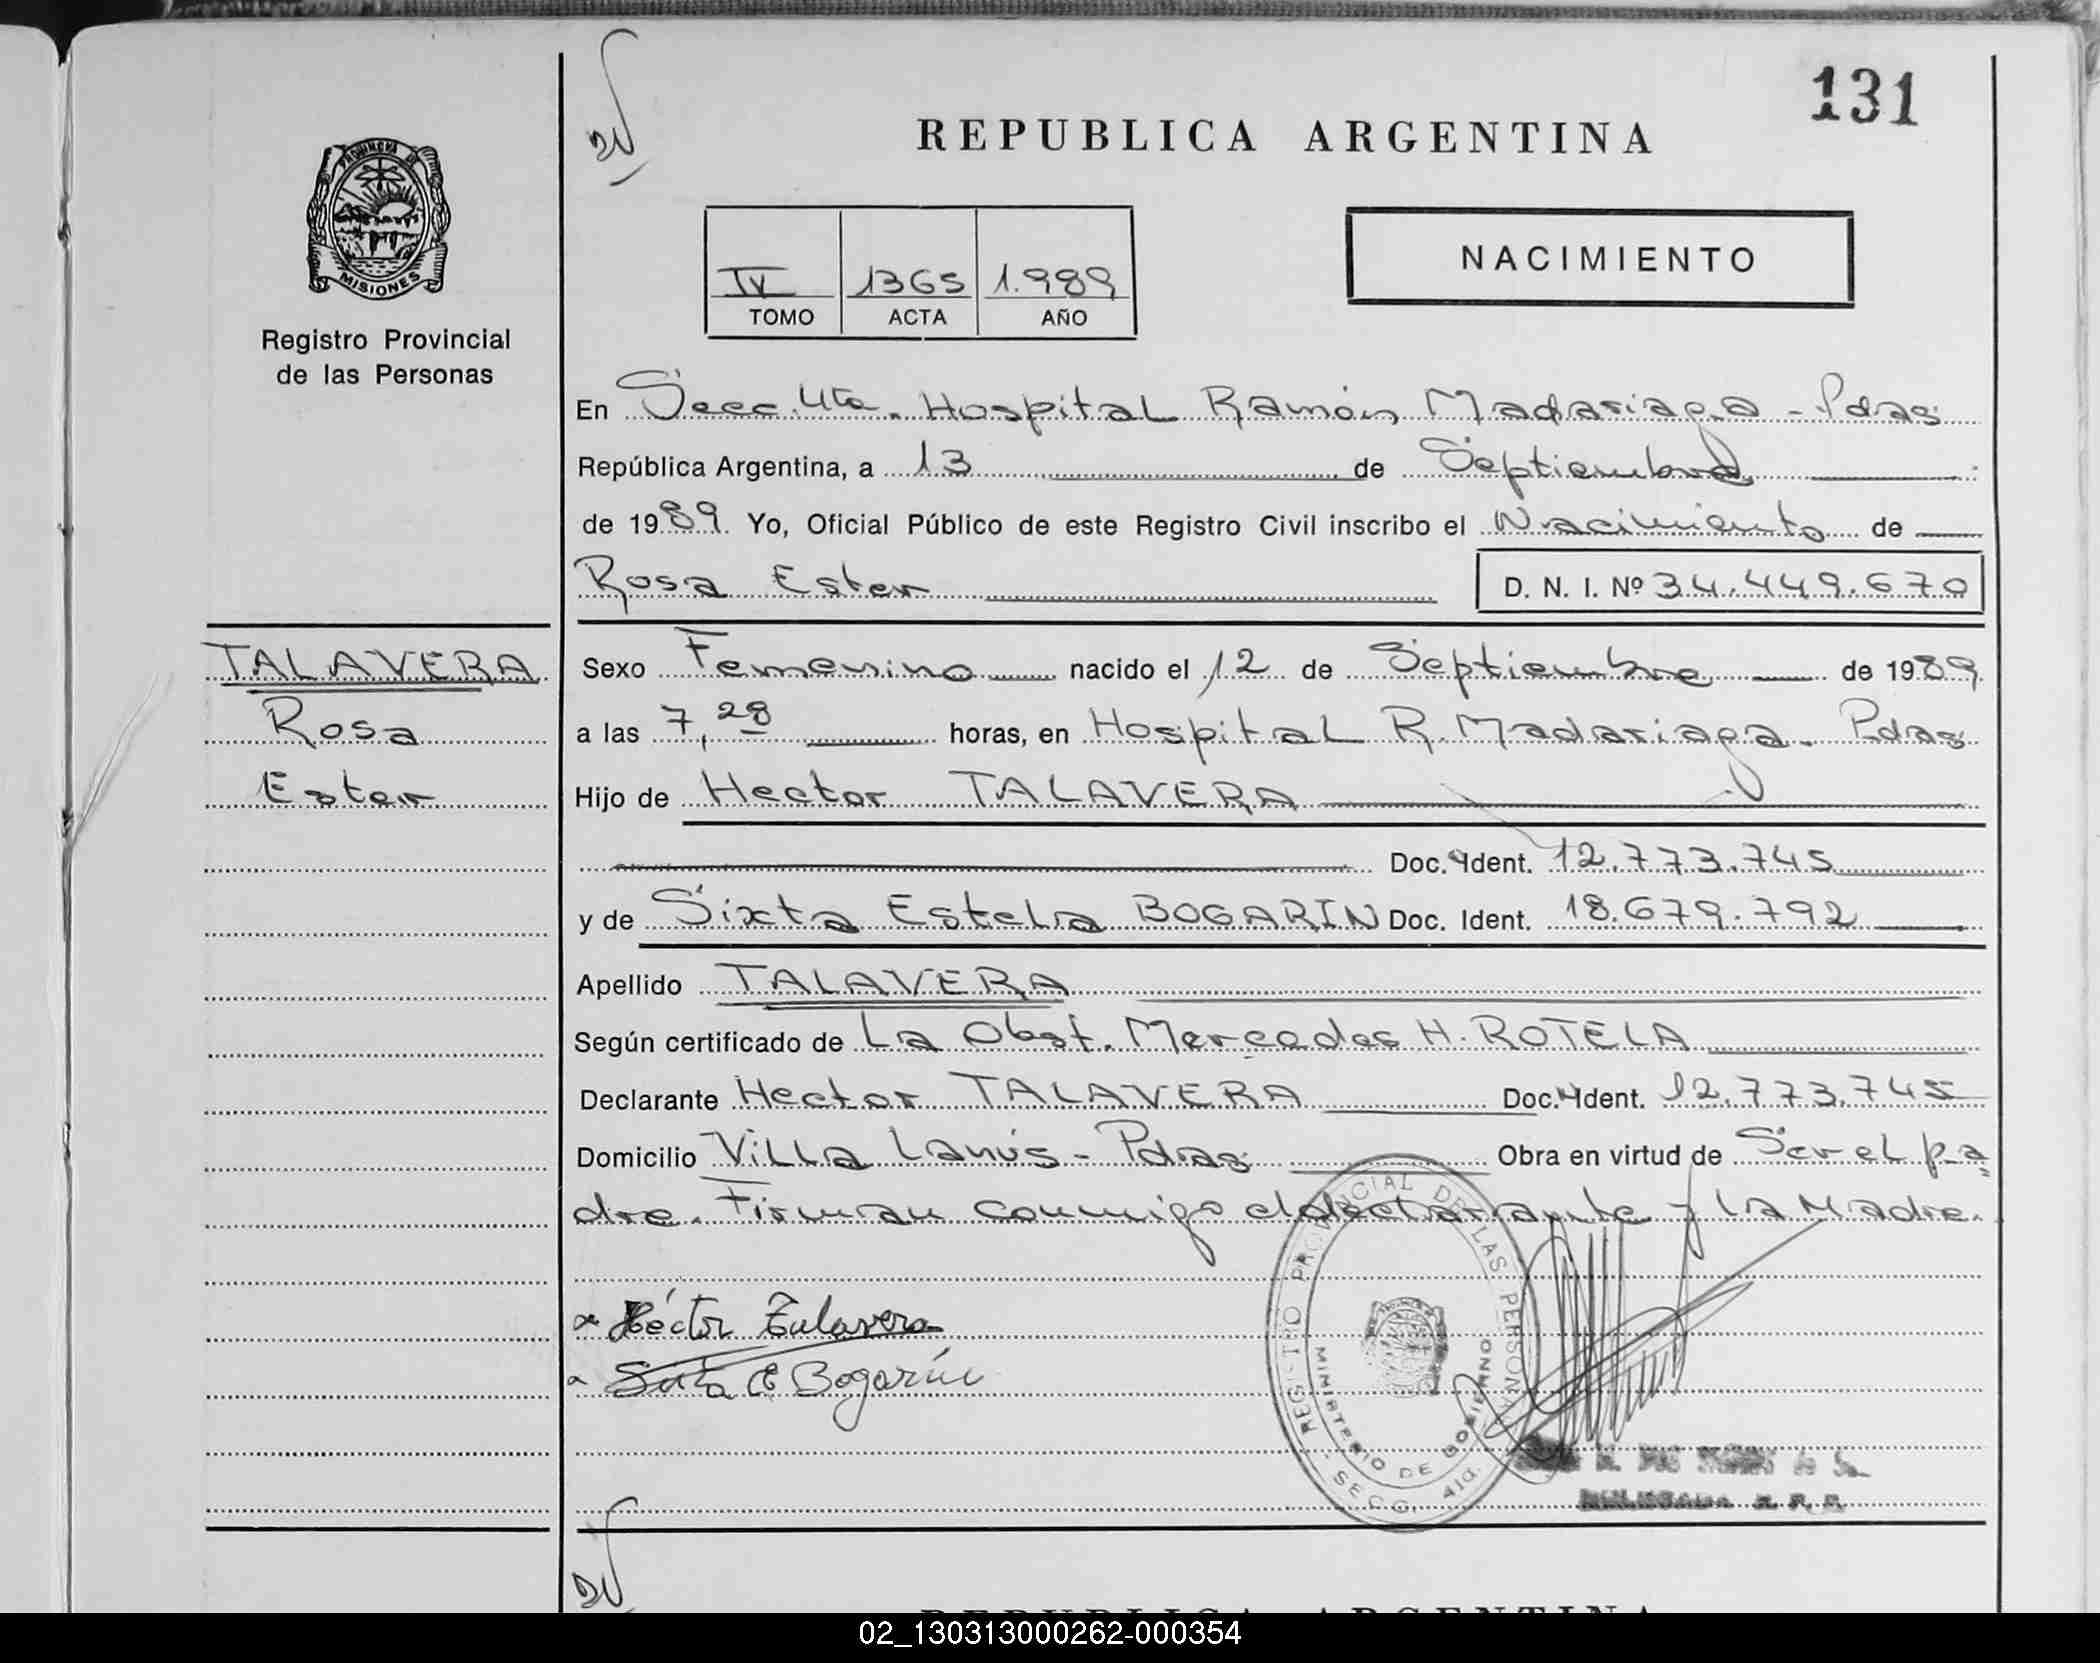 131
REPUBLICA ARGENTINA
PROVINCIA DE
MISIONES
Registro Provincial
de las Personas
NACIMIENTO
IV 1365 1.989
TOMO ACTA AÑO
En Secc. 4ta. Hospital Ramón Madariaga - Pdas
República Argentina, a 13 de Septiembre
de 1989. Yo, Oficial Público de este Registro Civil inscribo el Nacimiento de
Rosa Ester D. N. I. Nº 34.449.670
TALAVERA
Rosa
Ester
Sexo Femenino nacido el 12 de Septiembre de 1989
a las 7,28 horas, en Hospital R. Madariaga. Pdas
Hijo de Hector TALAVERA
Doc. Ident. 12.773.745
y de Sixta Estela BOGARIN Doc. Ident. 18.679.792
Apellido TALAVERA
Según certificado de La Obst. Mercedes H. ROTELA
Declarante Hector TALAVERA Doc. Ident. 12.773.745
Domicilio Villa Lanús - Pdas Obra en virtud de Ser el pa
dre. Firman conmigo el declarante y la Madre.
Héctor Talavera
Sixta E Bogarín
REGISTRO PROVINCIAL DE LAS PERSONAS
MINISTERIO DE GOBIERNO
SECC. 4ta.
REPUBLICA ARGENTINA
02_130313000262-000354